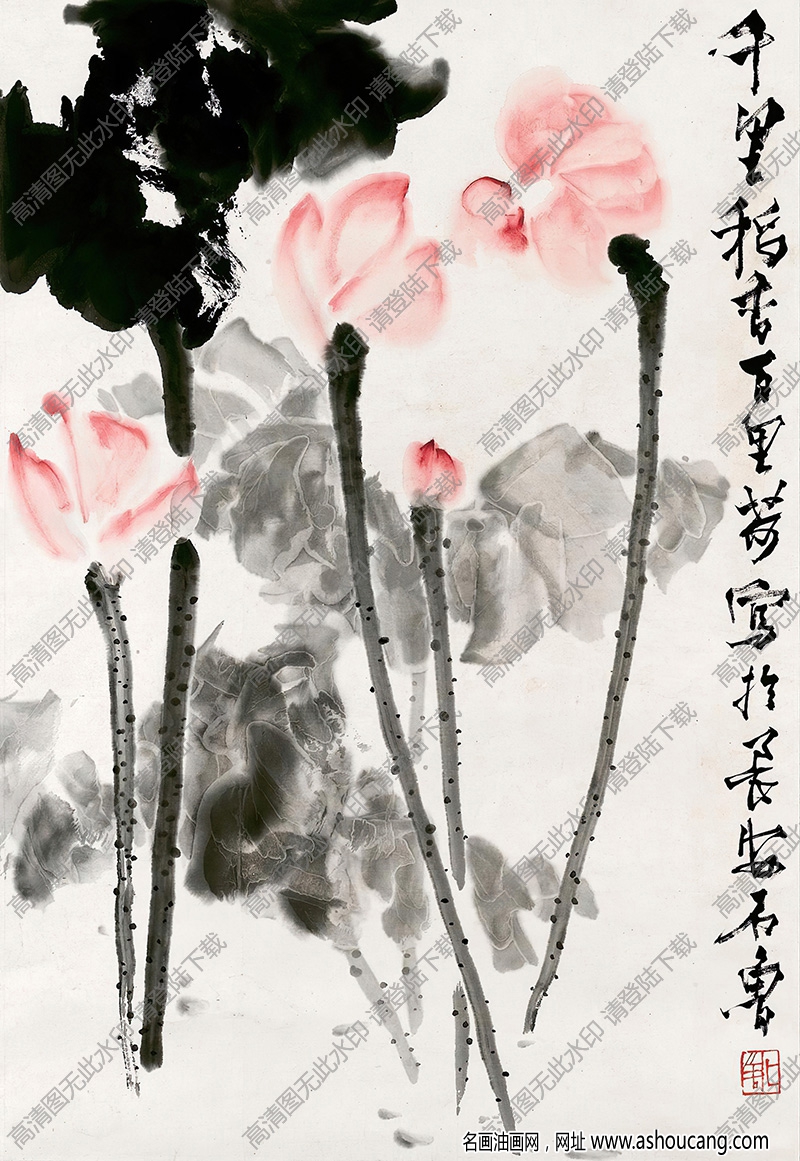 千里稻香百里荷写於长安石鲁
高清图无此水印 请登陆下载
名画油画网，网址 www.ashoucang.com